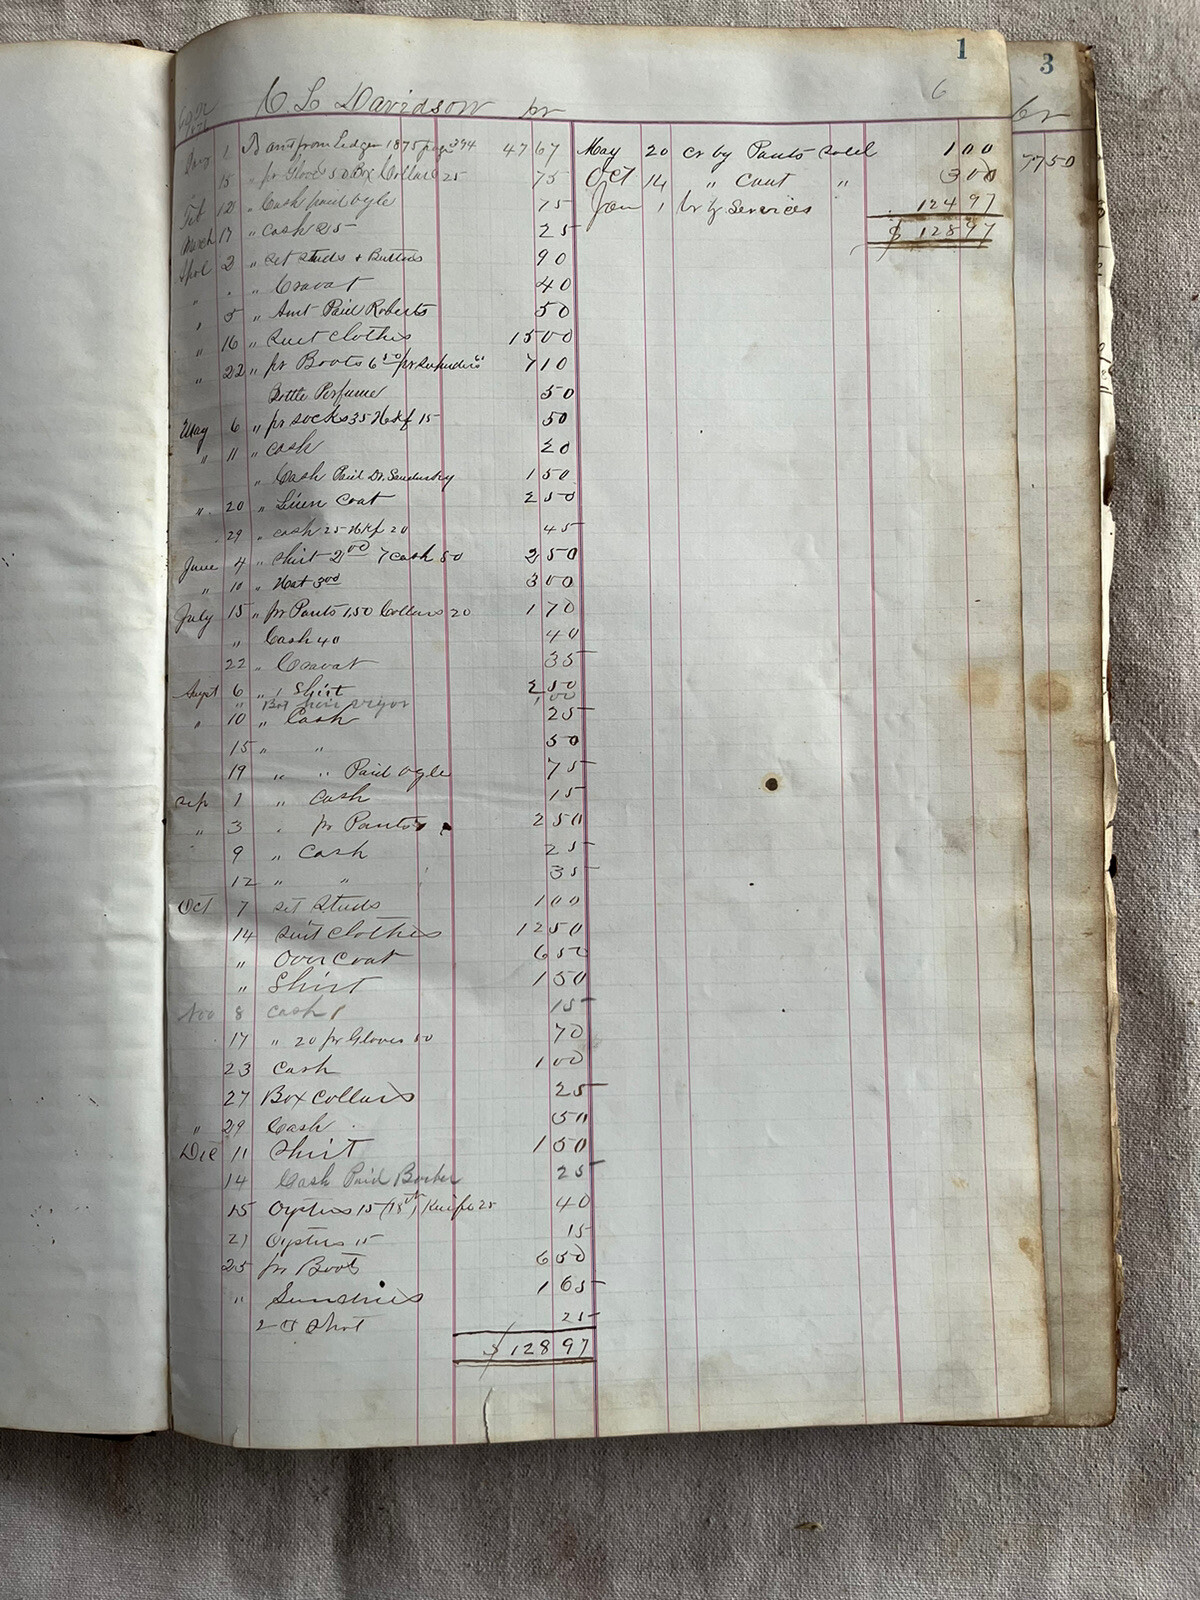 1
3
6
C L Davidson Dr
Cr
Jany 1 To amt from Ledger 1875 page 394 47 67
15 " pr Gloves 50 Box Collars 25 75
Feb 12 " Cash paid Ogle 75
March 17 " Cash 25 25
Aprl 2 " Set Studs & Buttons 90
" " " Cravat 40
" 5 " Amt Paid Roberts 50
" 16 " Suit Clothes 15 00
" 22 " pr Boots 6 50 pr Suspenders 60 7 10
Bottle Perfume 50
May 6 " pr socks 35 Hdkf 15 50
" 11 " cash 20
" Cash Paid Dr. Sandusky 1 50
" 20 " Linen Coat 2 50
" 29 " cash 25 Hkf 20 45
June 4 " Shirt 2 00 7 Cash 50 2 50
" 10 " Hat 3 00 3 00
July 15 " pr Pants 1,50 Collars 20 1 70
" Cash 40 40
22 " Cravat 35
Augst 6 " 1 Shirt 2 50
" Bot hair vigor 1,00
" 10 " Cash 25
15 " " 50
19 " " Paid Ogle 75
Sep 1 " Cash 15
" 3 " pr Pants 2 50
9 " Cash 25
12 " " 35
Oct 7 set studs 1 00
14 suit clothes 12 50
" Over Coat 6 50
" Shirt 1 50
Nov 8 Cash 15
17 " 20 pr Gloves 50 70
23 Cash 1 00
27 Box collars 25
" 29 Cash 50
Dec 11 Shirt 1 50
14 Cash Paid Barber 25
15 Oysters 15 Knife 25 40
21 Oysters 15 15
25 pr Boots 6 50
" Sundries 1 65
Shot 25
$ 128 97
May 20 Cr by Pants sold 1 00
Oct 14 " Coat " 3 00
Jan 1 Cr by Services 124 97
$ 128 97
77 50